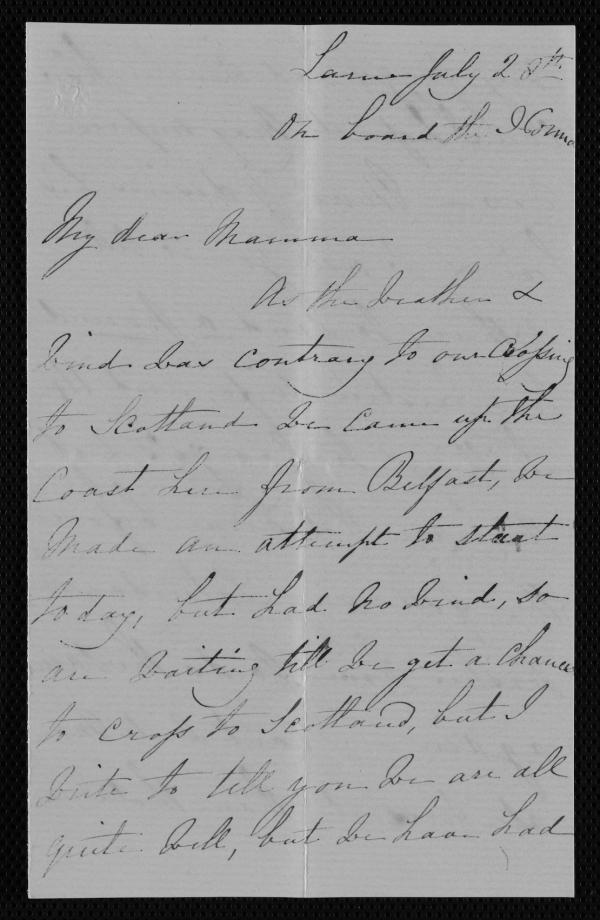 Larne July 28th
On board the
My dear Mamma
As the weather &
wind was contrary to our crossing
to Scotland we came up the
Coast here from Belfast, we
made an attempt to start
today, but had no wind, so
are waiting till we get a chance
to cross to Scotland, but I
write to tell you we are all
quite well, but we have had